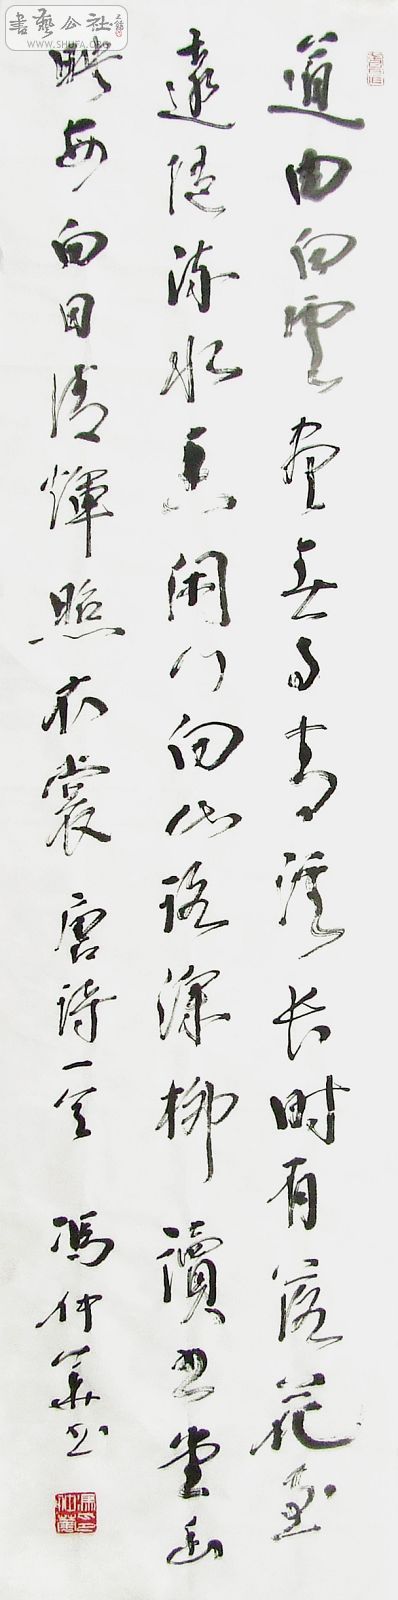 書藝公社
WWW.SHUFA.ORG
道由白雲尽春与青溪长时有落花至
遠随流水香闲门向山路深柳讀书堂幽
映每白日清輝照衣裳 唐诗一首 馮仲華书